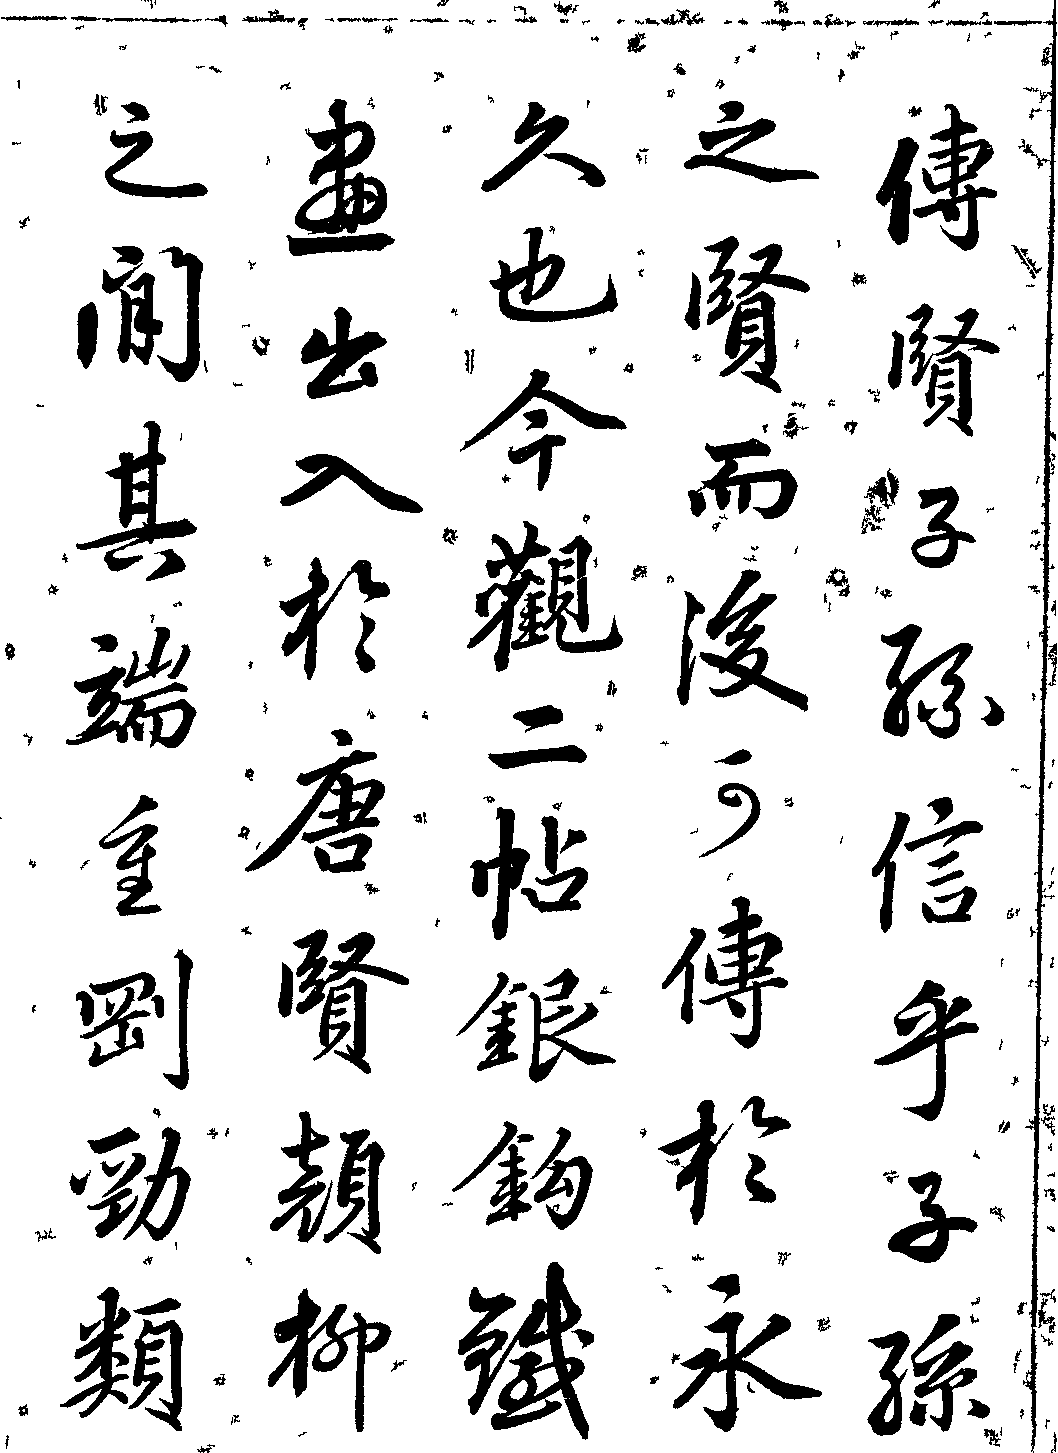 傳賢子孫信乎子孫
之賢而後可傳於永
久也今觀二帖銀鈎鐵
畫出入於唐賢顔柳
之間其端重剛勁類